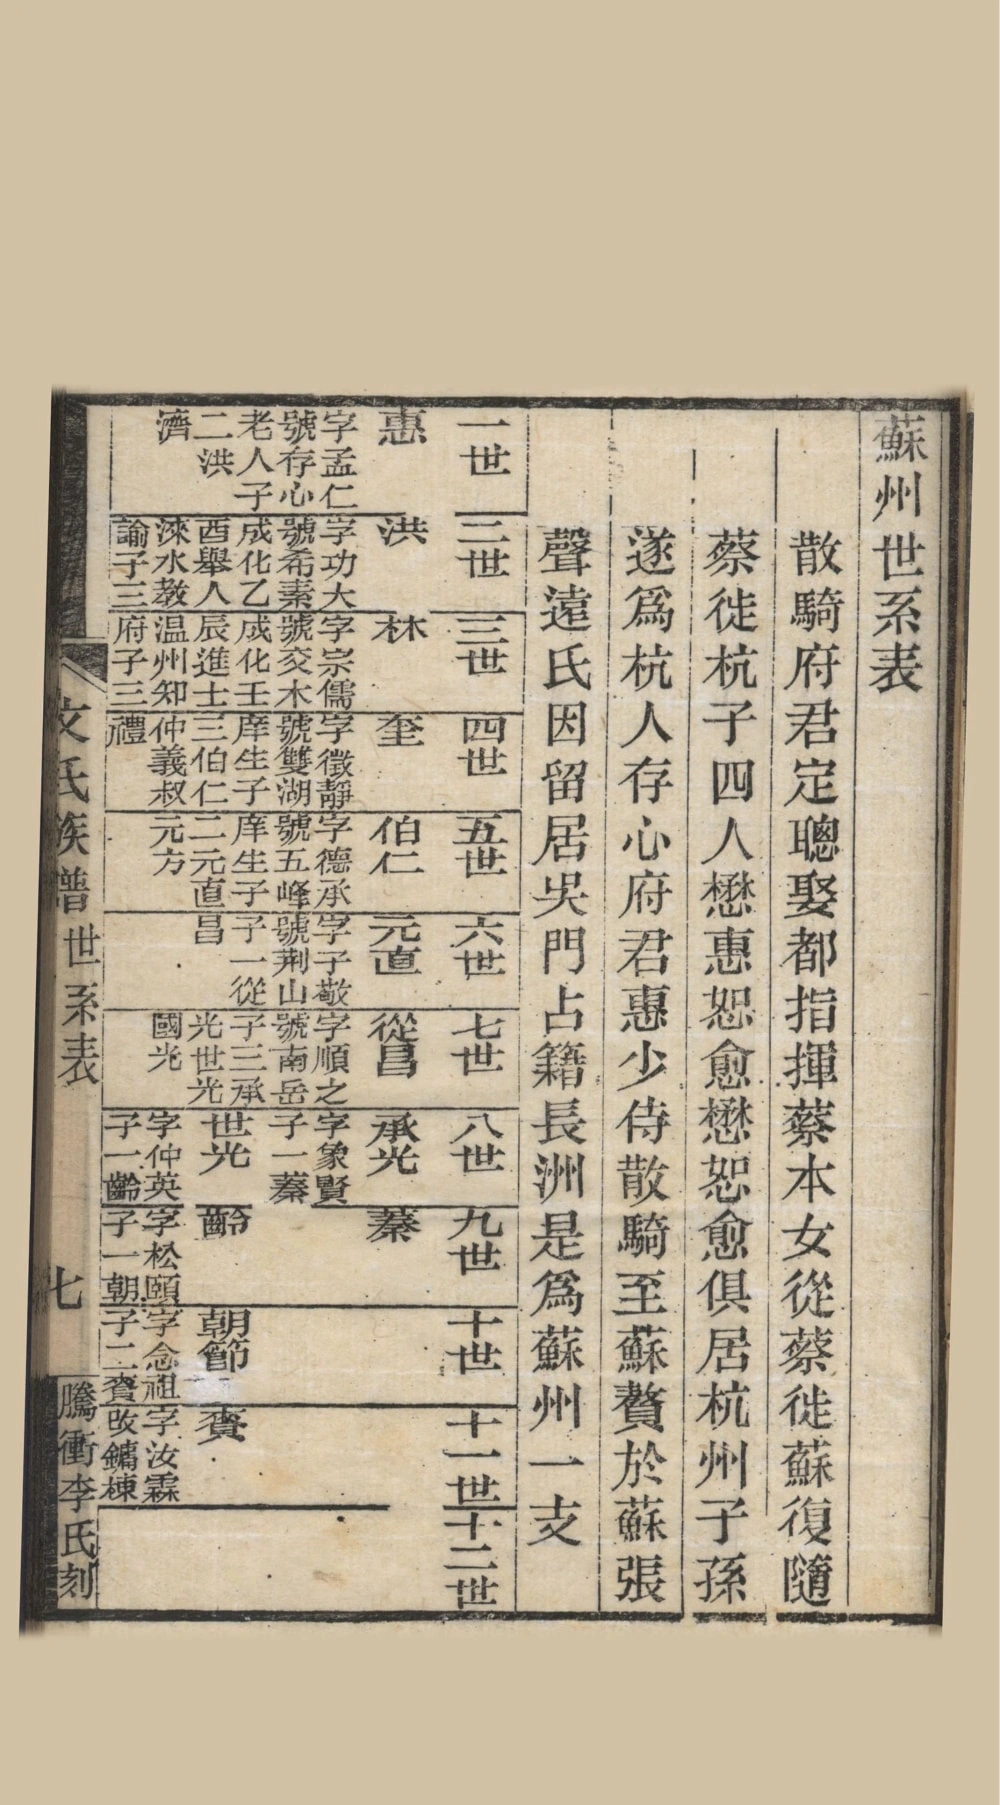 蘇州世系表
散騎府君定聰娶都指揮蔡本女從蔡徙蘇復隨
蔡徙杭子四人懋惠恕愈懋恕愈俱居杭州子孫
遂爲杭人存心府君惠少侍散騎至蘇贅於蘇張
聲遠氏因留居吳門占籍長洲是爲蘇州一支
一世
惠
字孟仁
號存心
老人子
二洪
濟
二世
洪
字功大
號希素
成化乙
酉舉人
淶水教
諭子三
三世
林
字宗儒
號交木
成化壬
辰進士
温州知
府子三
四世
奎
字徵靜
號雙湖
庠生子
三伯仁
仲義叔
禮
五世
伯仁
字德承
號五峰
庠生子
二元直
元方
六世
元直
字子敬
號荆山
子一從
昌
七世
從昌
字順之
號南岳
子三承
光世光
國光
八世
承光
字象賢
子一蓁
世光
字仲英
子一齡
九世
蓁
齡
字松頤
子一朝
十世
朝節
字念祖
子二賚
十一世
賚
字汝霖
改鏞棟
十二世
文氏族譜 世系表 七 騰衝李氏刻